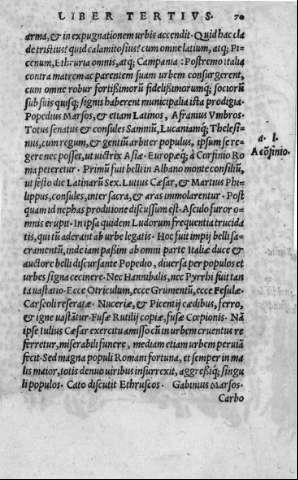 LIBER TERTIVS. 70
arma, & in expugnationem urbis accendit. Quid hac cla
de tristius? quid calamitosius? cum omne latium, atq; Pi
cenum, Ethruria omnis, atq; Campania: Postremo italia
contra matrem ac parentem suam urbem consurgerent,
cum omne robur fortissimorũ fidelissimorumq; sociorũ
sub suis quisq; signis haberent municipalia ista prodigia.
Popedius Marsos, & etiam Latinos, Afranius Vmbros.
Totus senatus & consules Samniũ, Lucaniamq; Thelesi=
nus, cum regum, & gentiũ arbiter populus, ipsum se re=
gere nec posset, ut uictrix Asia. Europæq; à Corfinio Ro
ma peteretur. Primũ fuit belli in Albano monte consiliũ,
ut festo die Latinarũ Sex. Lutius Cæsar, & Martius Phi=
lippus, consules, inter sacra, & aras immolarentur. Post
quam id nephas proditione discussum est. Asculo furor o=
mnis erupit. In ipsa quidem Ludorum frequentia trucida
tis, qui tũ aderant ab urbe legatis. Hoc fuit impij belli sa=
cramentũ, inde iam passim ab omni parte Italiæ duce &
auctore belli discursante Popedio, diuersa per populos et
urbes signa cecinere. Nec Hannibalis, nec Pyrrhi fuit tan
ta uastatio. Ecce Otriculum, ecce Grumentũ, ecce Fesulæ.
Carseoli reseratæ. Nuceriæ, & Picentij cædibus, ferro,
& igne uastãtur. Fusæ Rutilij copiæ, fusæ Cepionis. Nã
ipse Iulius Cæsar exercitu amisso cũ in urbem cruentus re
ferretur, miserabili funere, mediam etiam urbem peruiã
fecit. Sed magna populi Romani fortuna, et semper in ma
lis maior, totis denuo uiribus insurrexit, aggressiq; singu
li populos. Cato discutit Ethruscos. Gabinius Marsos.
Carbo
a. l.